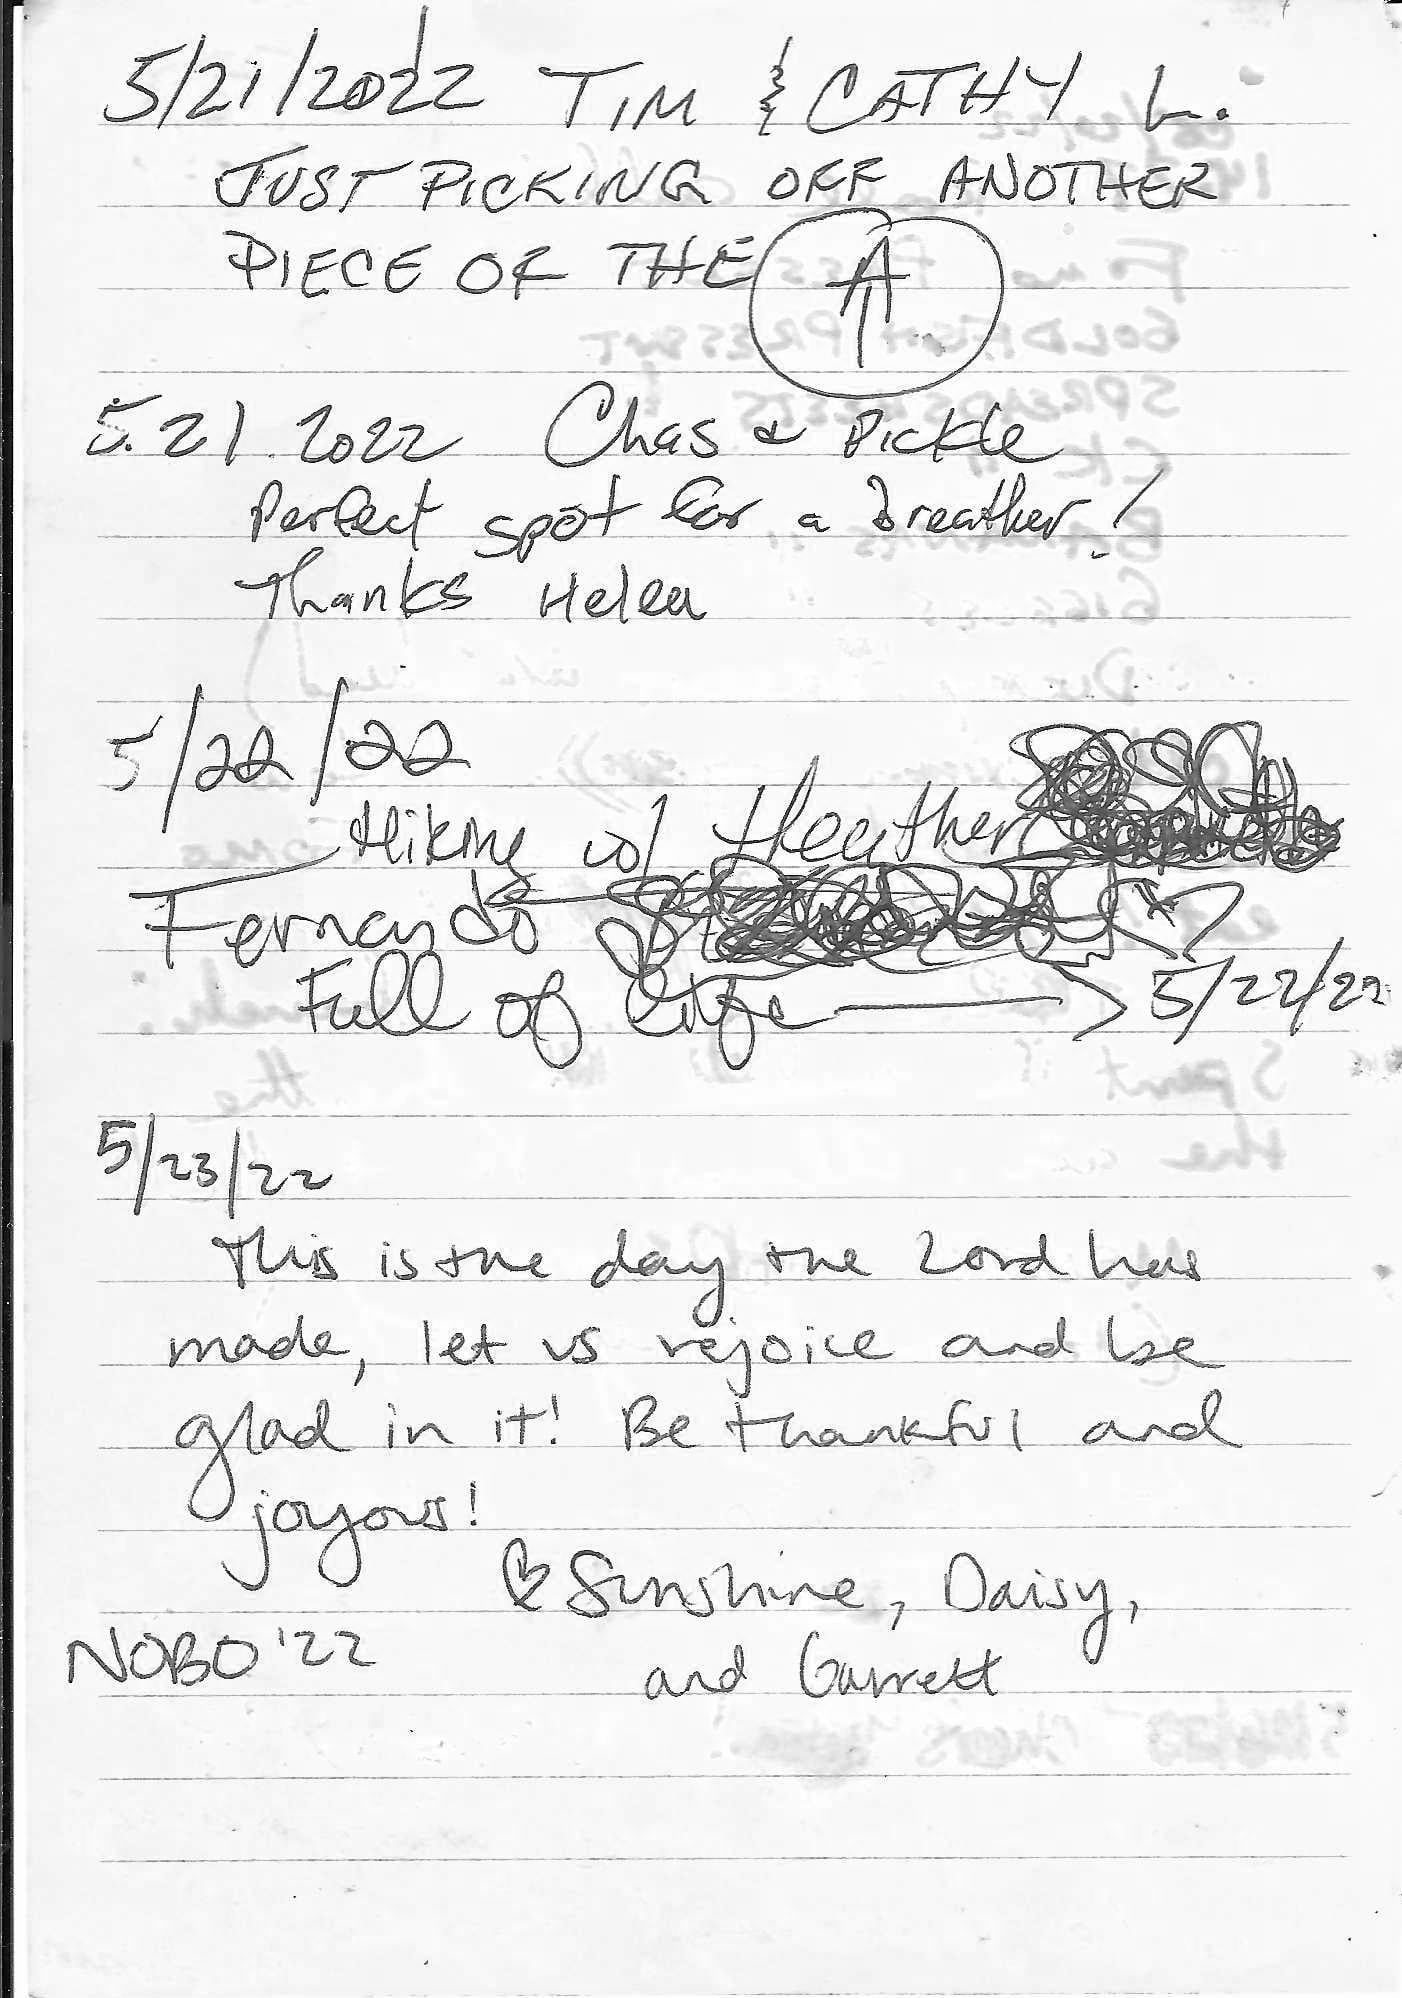 5/21/2022 TIM & CATHY L.
JUST PICKING OFF ANOTHER
PIECE OF THE AT
5.21.2022 Chas & Pickle
Perfect spot for a breather!
Thanks Helen
5/22/22
Hiking w/ Heather
Fernando
Full of life → 5/22/22
5/23/22
This is the day the Lord has
made, let us rejoice and be
glad in it! Be thankful and
joyous!
♡ Sunshine, Daisy,
and Garrett
NOBO '22